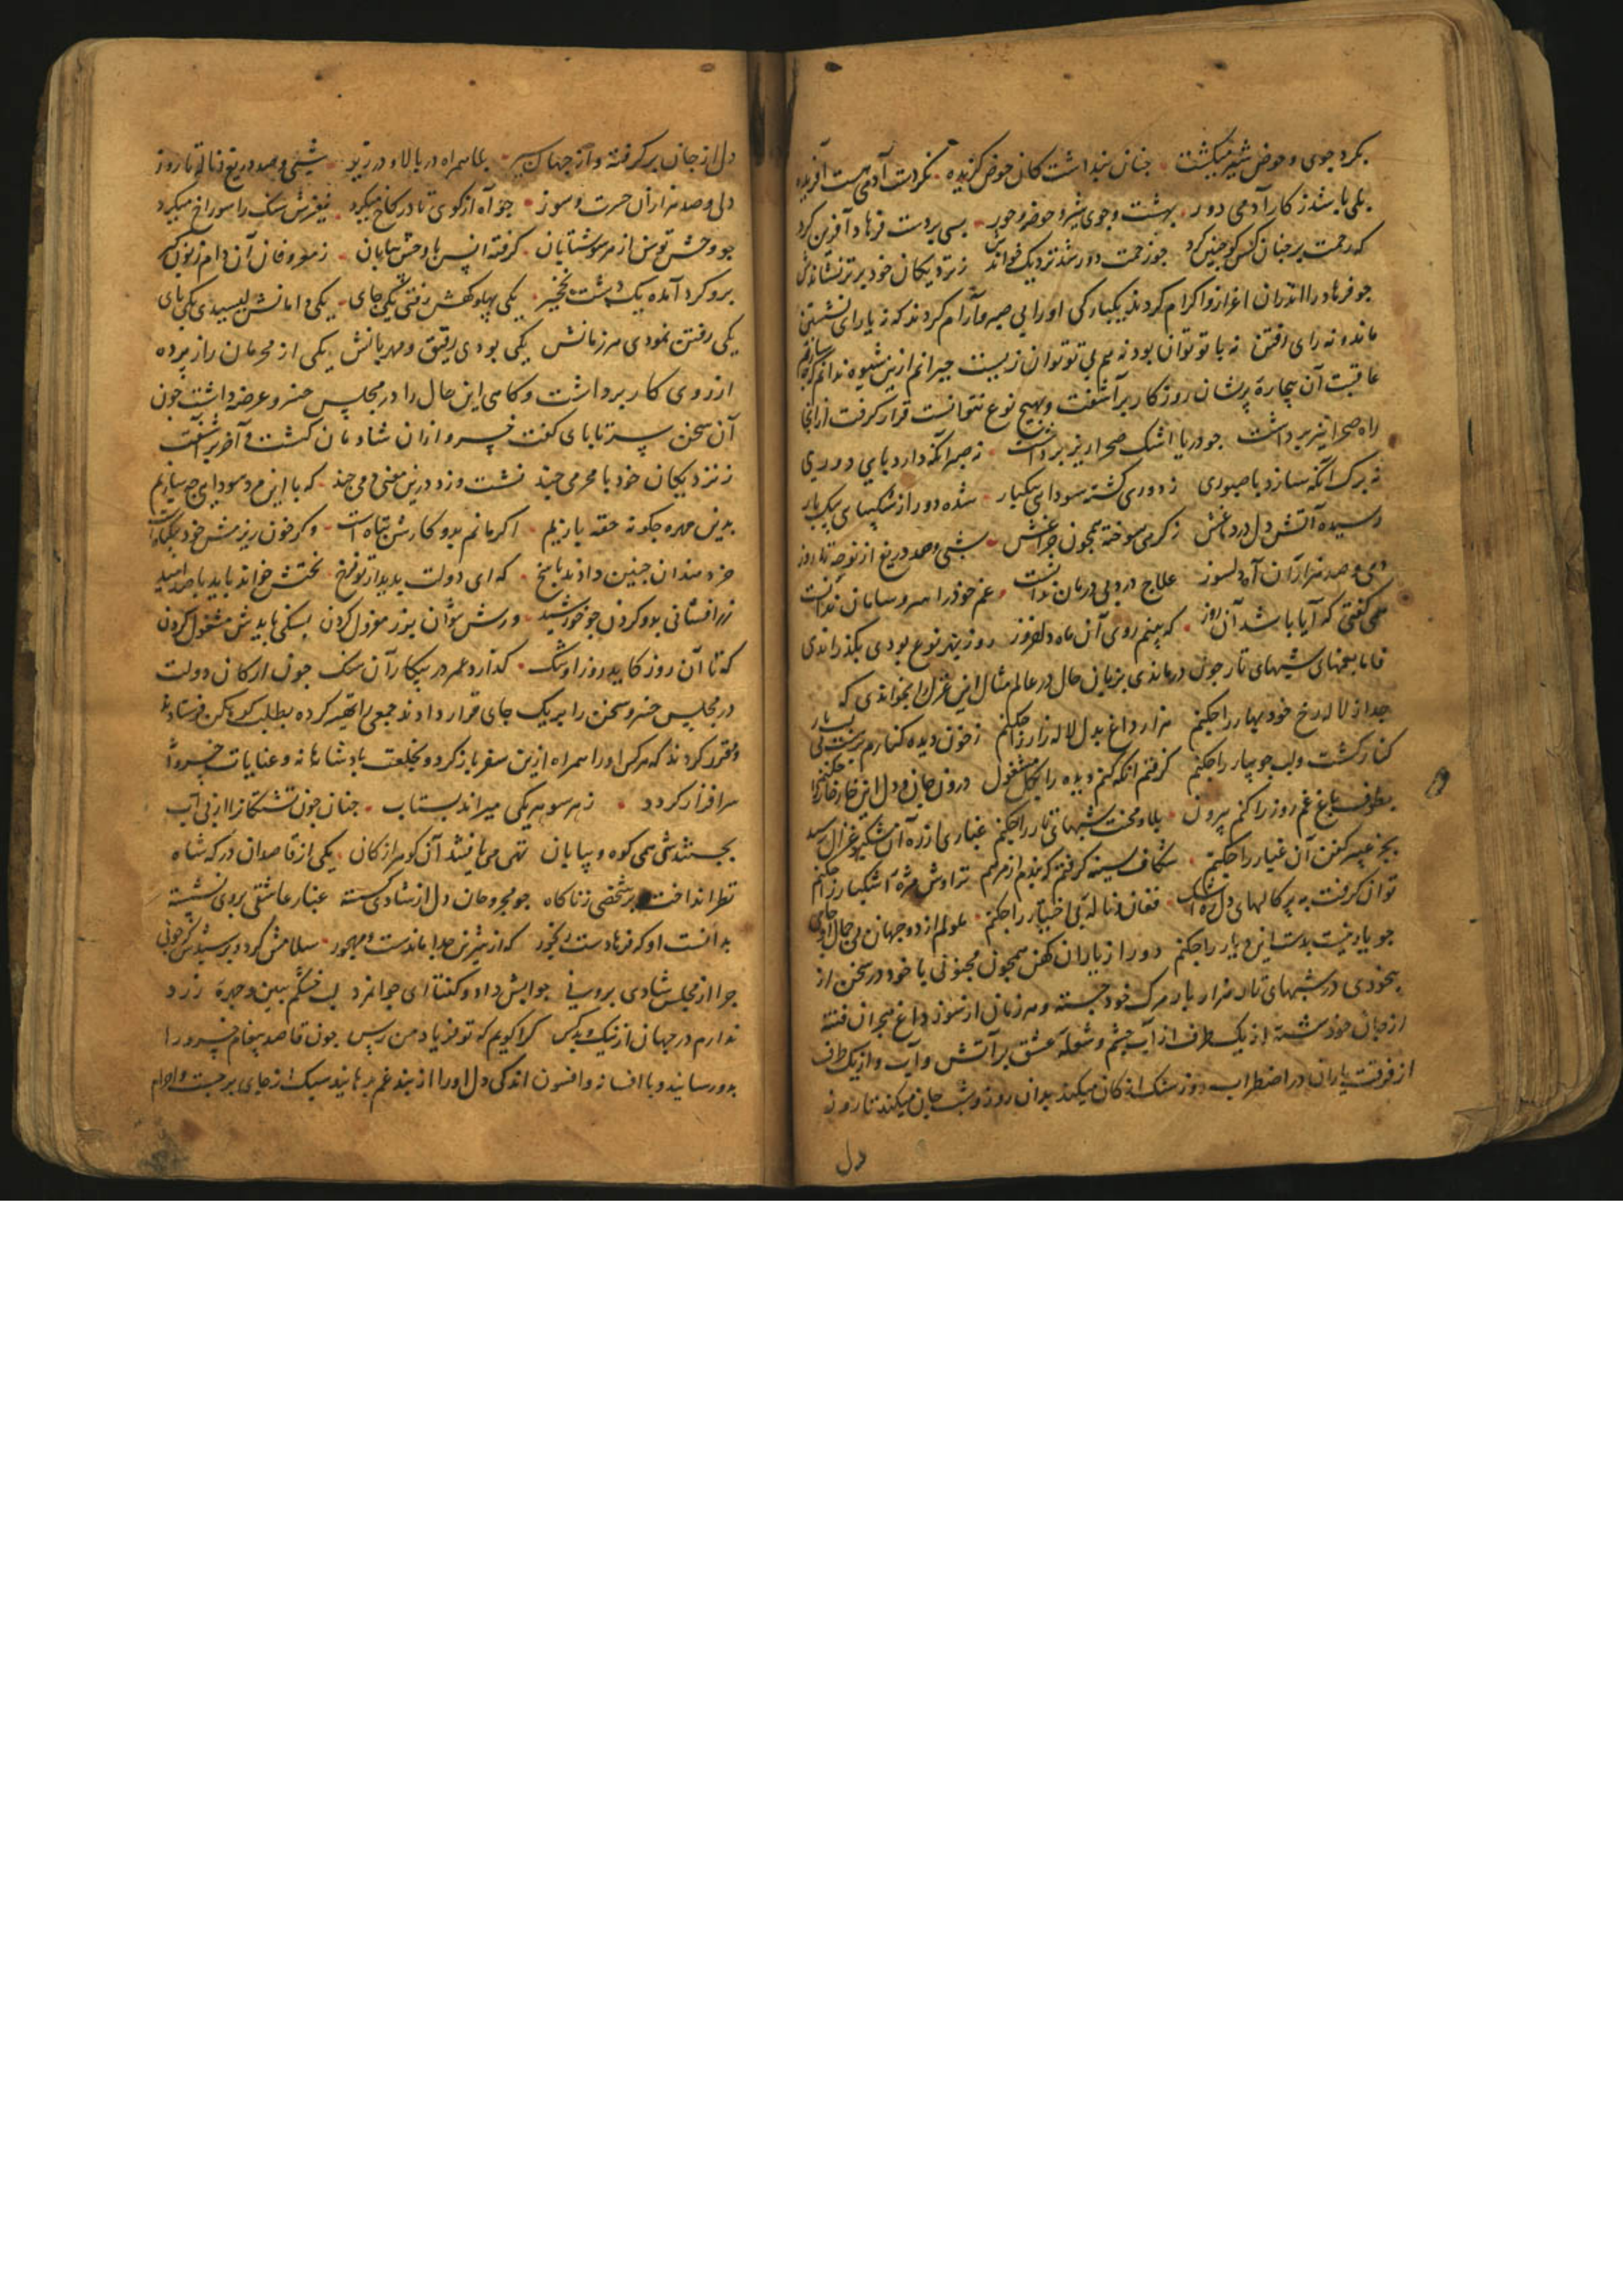 بکرد جوی و حوض شیر میکشت جنان بنداشت کان حوض کزیده نکردست آدمی هست آفریده
بلی باشد ز کار آدمی دور بهشت و جوی شیر و حوض و حور بسی بر دست فرهاد آفرین کرد
که رحمت بر جنان کس کو جنین کرد جو زحمت دور شد نزدیک خواندش ز نزدیکان خود برتر نشاندش
جو فرهاد را اعزاز و اکرام کردند یکبارکی او را بی صبر و آرام کردند که نه یارای نشستن
ماند و نه رای رفتن نه با تو توان بود نه هم بی تو توان زیست حیرانم ازین شیوه ندانم
عاقبت آن بیچاره پریشان روزکار برآشفت و بهیج نوع نتوانست قرار کرفت از انجا
راه صحرا نیز برداشت جو دریا اشک صحرا ریز برداشت نه صبر آنکه دارد بای دوری
نه برک آنکه سازد با صبوری ز دوری کشته سودایی بیکبار شده دور از شکیبایی بیکبار
رسیده آتش دل در دماغش ز کرمی سوخته همجون جراغش شبی و صد دریغ از نوحه تا روز
دمی و صد هزاران آه دلسوز علاج درد بی درمان ندانست غم خود را سر و سامان ندانست
همی کفتی که آیا باشد آن روز که بینم روی آن ماه دلفروز روز بهر نوع بودی بکذراندی
فاما شبهای تار جون درماندی بزبان حال در عالم مثال این غزل را بخواندی که
جدا ز لاله رخ خود بهار را جکنم هزار داغ بدل لاله زار را جکنم ز خون دیده کنارم
کنار کشت و لب جویبار را جکنم کرفتم آنکه کنم دیده را بکل مشغول درون جان و دل این خار خار را
بطوف باغ غم روز را کنم بیرون بلا و محنت شبهای تار را جکنم غباری از ره آن مشکبو غزال رسد
بجز عبیر کفن آن غبار را جکنم شکاف سینه کرفتم که بندم از مرهم تراوش مژه اشکبار را جکنم
توان کرفت به برکالهای دل ره اشک فغان و نالۀ بی اختیار را جکنم ملولم از دو جهان بی جمال او
جو یار نیست بدست این دیار را جکنم دور از یاران کهن همجون مجنونی با خود در سخن از
بیخودی در شبهای تار هزار بار مرک خود جسته و هر زمان از سوز داغ هجران
از جان خود شسته از یک طرف از آب جشم و شعلۀ عشق بر آتش و آب و از یک طرف
از فرقت یاران در اضطراب روز سنک از کان میکند بدان روز و شب جان میکند تا روز
دل
دل از جان برکرفته وز جهان سیر بلا همراه در بالا و در زیر شبی و صد دریغ و ناله تا روز
دلی و صد هزاران حسرت و سوز جو آه از کوی تا در کاخ میکرد نفیرش سنک را سوراخ میکرد
جو وحش توسن از هر سو شتابان کرفته انس با وحش بیابان ز معروفان آن دام زبون کیر
برو کرد آمده یک دشت نخجیر یکی پهلوکهش رفتی یکی جای یکی دامانش بوسیدی یکی بای
یکی رفتن نمودی مرزبانش یکی بودی رفیق و مهربانش یکی از محرمان راز برده
از روی کار برداشت و کماهی این حال را در مجلس خسرو عرضه داشت جون
آن سخن سر تا بای کفت خسرو ازان شادمان کشت و آخر برآشفت
ز نزدیکان خود با محرمی جند نشست و زد درین معنی دمی جند که با این مرد سودایی جه سازیم
بدین مهره جکونه حقه بازیم اکر مانم بدو کارش تباه است و کر خون ریزمش خود بیکناه است
خردمندان جنین دادند باسخ که ای دولت بدیدار تو فرخ نخستش خواند باید با صد امید
زر افشانی بدو کردن جو خورشید ورش نتوان بزر معزول کردن بسنکی بایدش مشغول کردن
که تا آن روز کاید روز او تنک کذارد عمر در بیکار آن سنک جون ارکان دولت
در مجلس خسرو سخن را بر یک جای قرار دادند جمعی را تعیین کرده بطلب کوهکن فرستادند
و مقرر کردند که هر کس او را همراه ازین سفر باز کردد بخلعت بادشاهانه و عنایات خسروانه
سرافراز کردد ز هر سو هر یکی میراند بشتاب جنان جون تشنکانرا از بی آب
بجستندش همی کوه و بیابان تهی می یافتند آن کوهر از کان یکی از قاصدان درکه شاه
نظر انداخت بر شخصی ز ناکاه جو مجروحان دل از شادی کسسته غبار عاشقی بروی نشسته
بدانست او که فرهادست رنجور که از شیرین جدا ماندست و مهجور سلامش کرد و پرسیدش که جونی
جرا از مجلس شادی برونی جوابش داد و کفتا ای جوانمرد لب خشکم ببین و جهرۀ زرد
ندارم در جهان از نیک و بد کس کرا کویم که تو فریاد من رس جون قاصد پیغام خسرو را
بدو رسانید و با افسانه و افسون اندکی دل او را از بند غم رهانید سبک از جای برجست و احرام